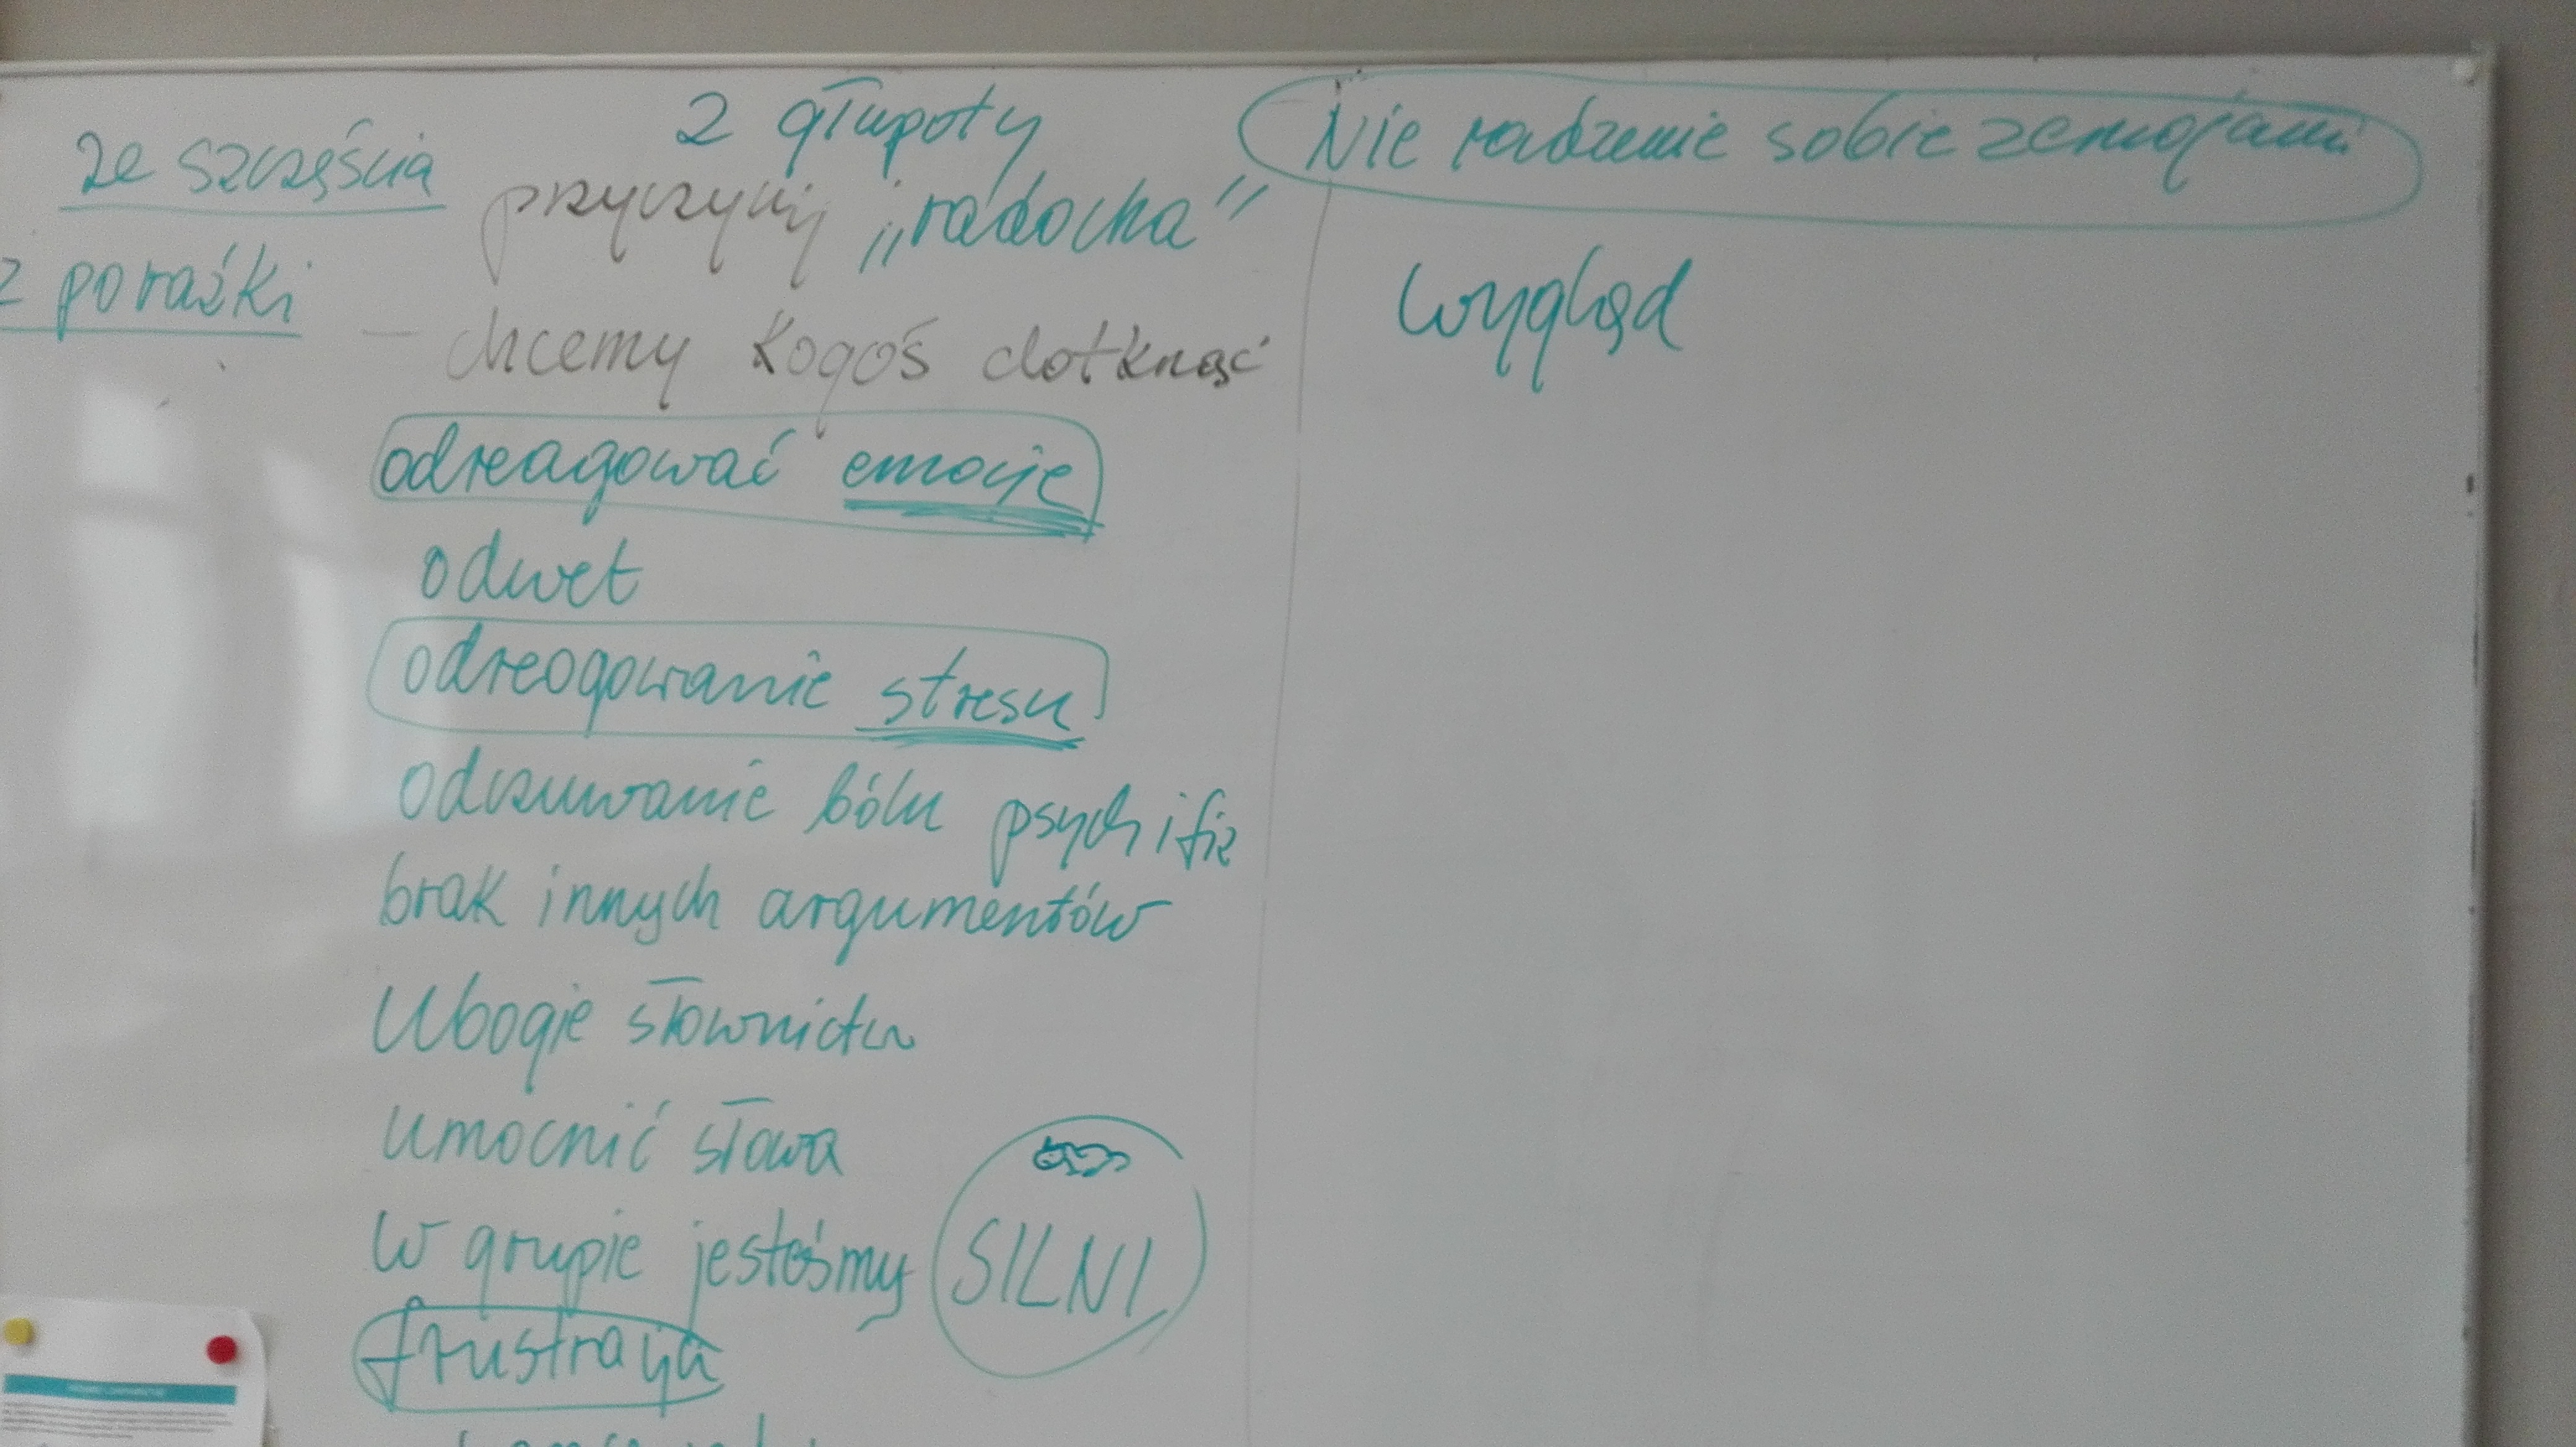 ze szczęścia
z porażki
z głupoty
przyczyny „radocha”
- chcemy kogoś dotknąć
odreagować emocje
odwet
odreogowanie stresu
odczuwanie bólu psych i fiz
brak innych argumentów
Ubogie słownictw
umocnić słowa
w grupie jesteśmy SILNI
frustracja
Nie radzenie sobie z emocjami
wygląd